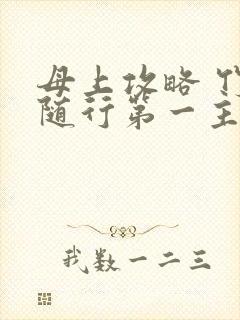 母上攻略
随行第一主
我数一二三